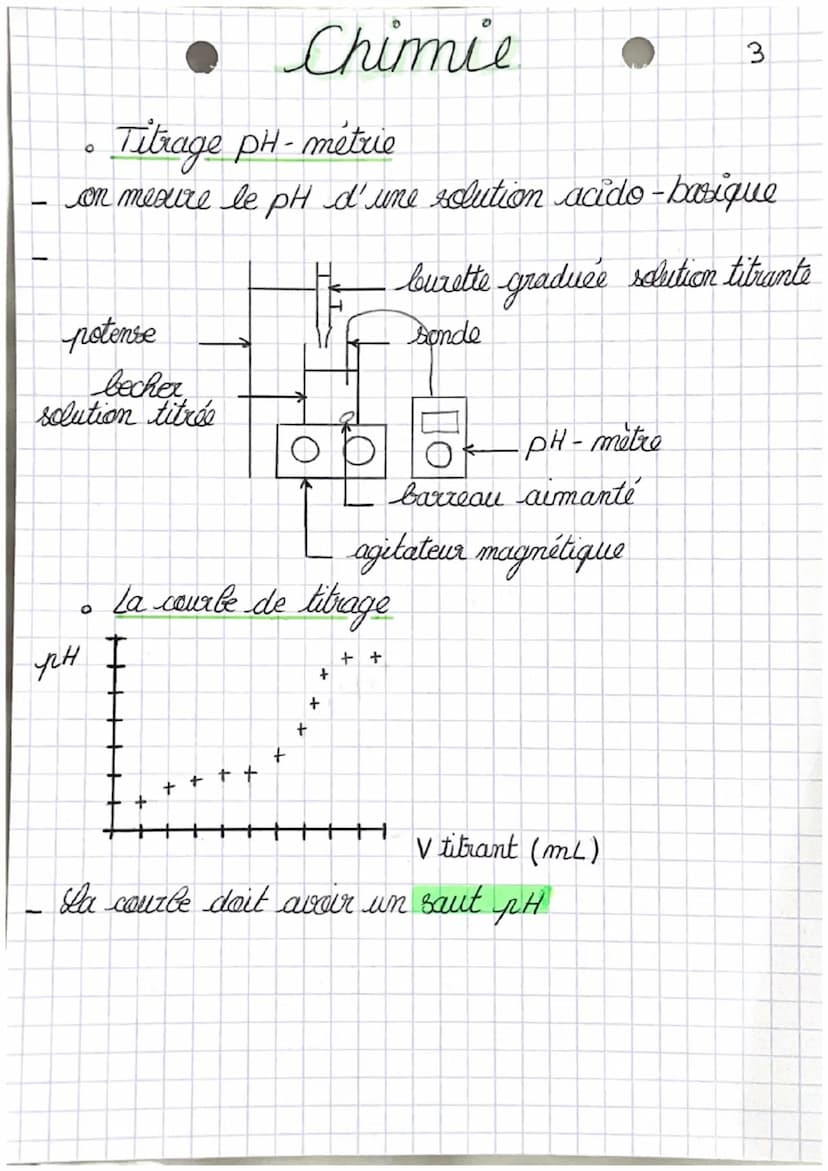 Chimie
3
• Titrage pH-métrie
- on mesure le pH d'une solution acido-basique
-
burette graduée solution titrante
potense
sonde
becher
solution titrée
pH-mètre
barreau aimanté
agitateur magnétique
• La courbe de titrage
pH
V titrant (mL)
- La courbe doit avoir un saut pH